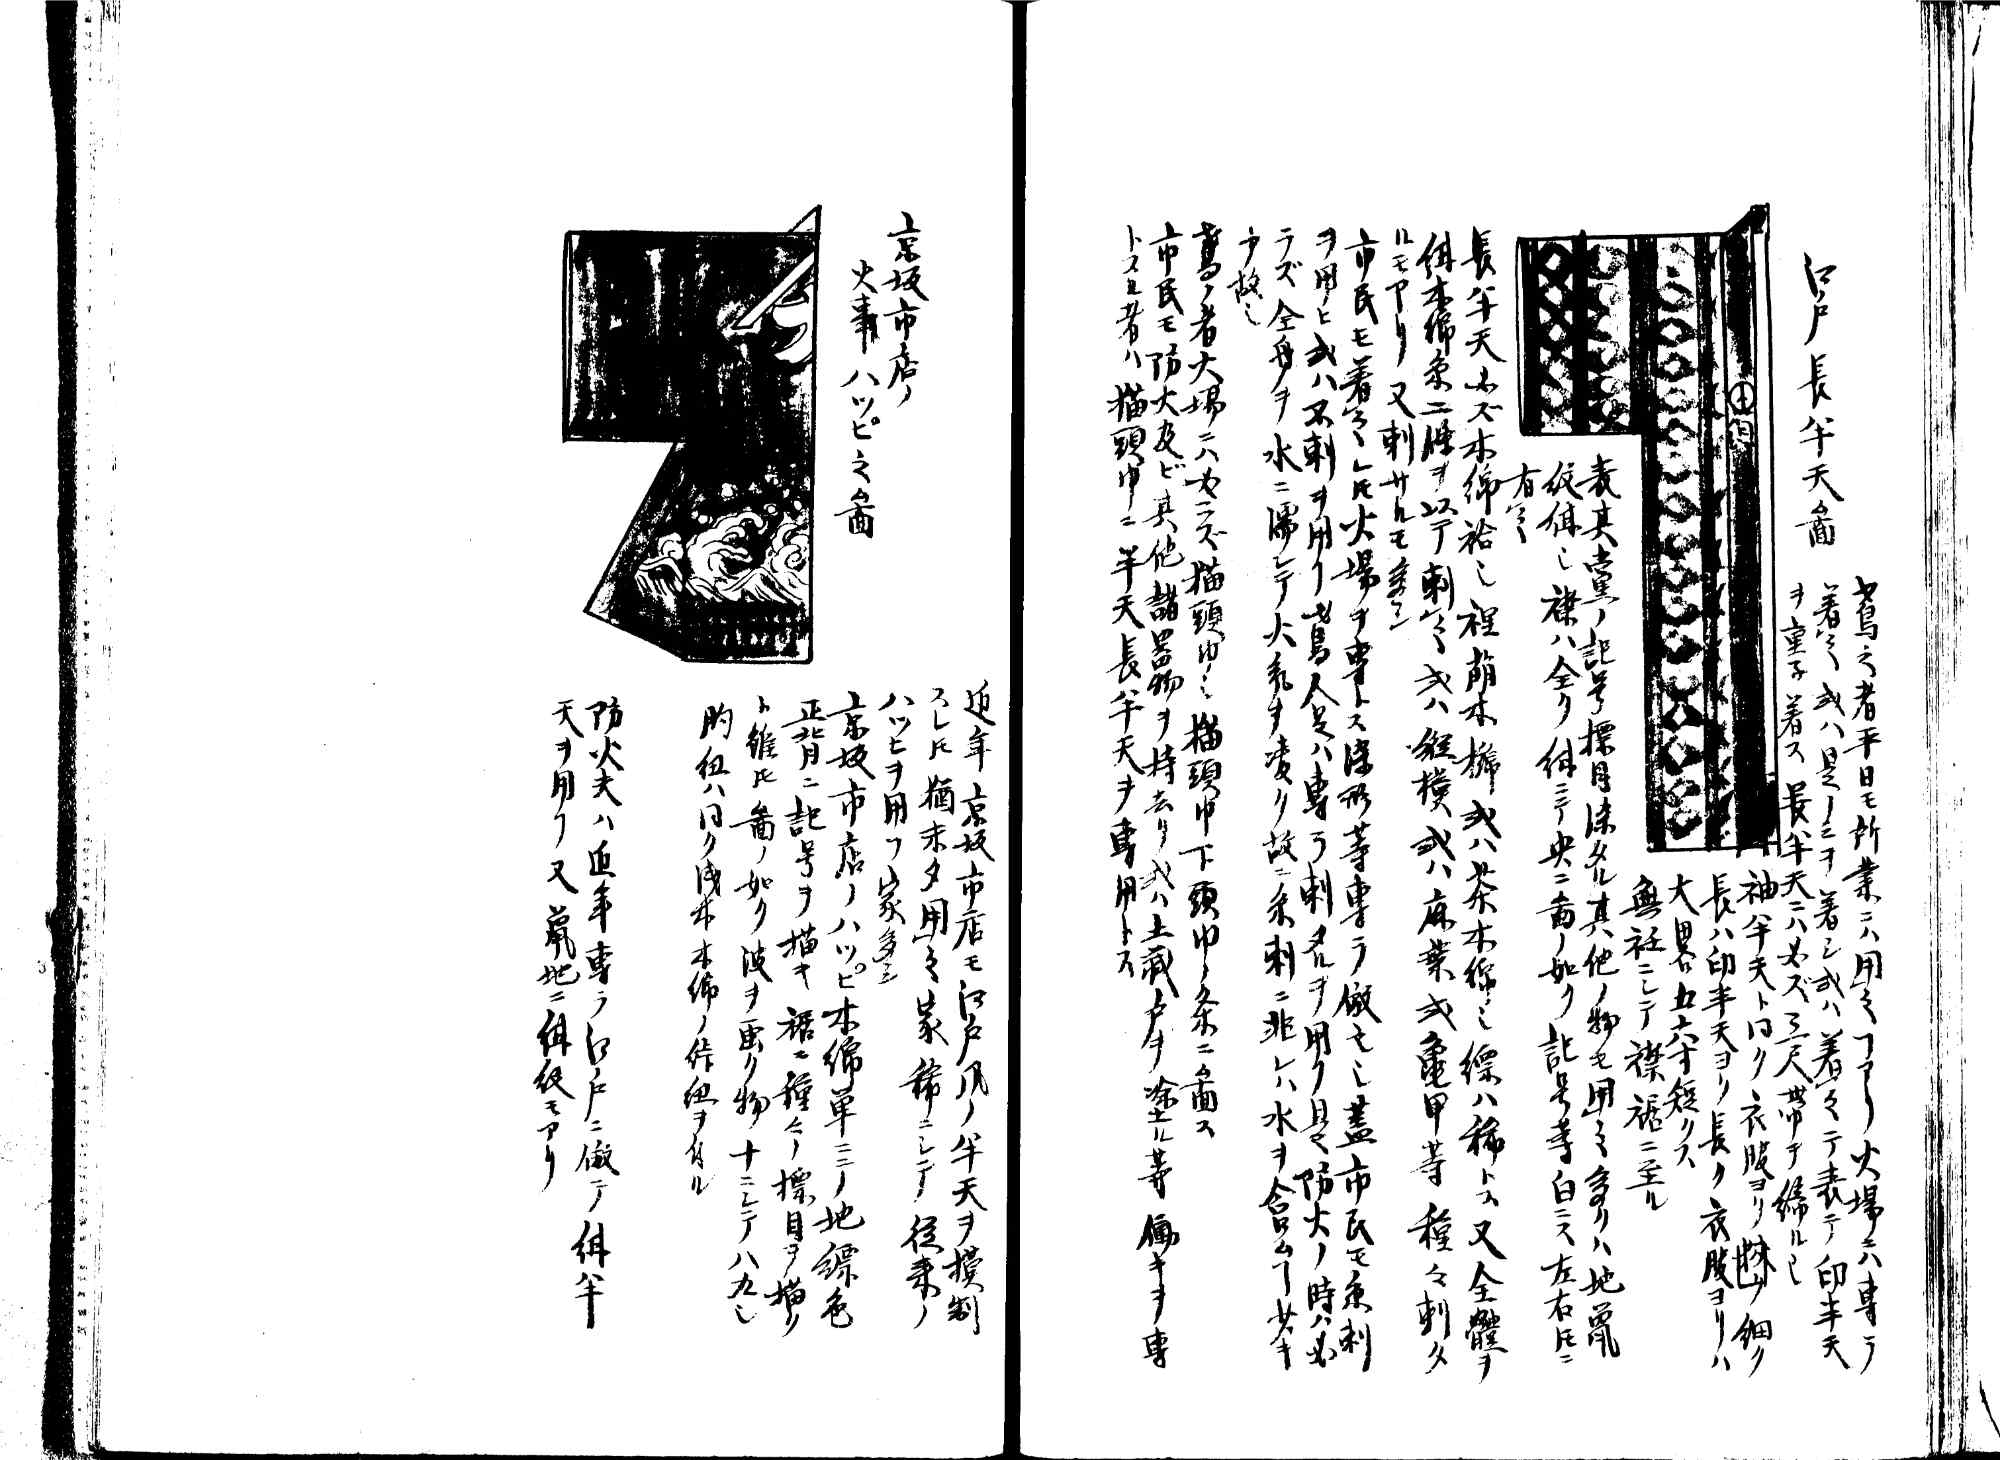 江戸長半天圖
鳶之者平日モ所業ニハ用之ヿアリ火場ニハ専ラ
着之或ハ是ノミヲ着シ或ハ着之テ表ニ印半天
ヲ重子着ス長半天ニハ必ズ三尺帯ヲ締ル也
袖半天ト同ク衣服ヨリ細ク
長ハ印半天ヨリ長ク衣服ヨリハ
大畧五六寸短クス
無衽ニシテ襟裾ニ至ル
表其黨ノ記号標目染タル其他ノ物モ用之多クハ地鼠
紋紺也襟ハ全ク紺ニテ央ニ圖ノ如ク記号等白ニス左右トモニ
有之
長半天必ズ木綿袷也裡萠木綿或ハ茶木綿也縹ハ稀トス又全體ヲ
紺木綿糸二條ヲ以テ刺之或ハ縦横或ハ麻葉或亀甲等種々刺タ
ルモアリ又刺サルモ多シ
市民モ着之トモ火場ヲ専トス染形等専ラ倣之也蓋市民モ糸刺
ヲ用ヒ或ハ不刺ヲ用ク鳶人足ハ専ラ刺タルヲ用ク是防火ノ時ハ必
ラズ全身ヲ水ニ濡シテ火気ヲ凌ク故ニ糸刺ニ非レハ水ヲ含ムヿ少キ
ヲ故也
鳶ノ者火場ニハ必ラズ猫頭巾也猫頭巾下頭巾ノ条ニ圖ス
市民モ防火及ビ其他諸器物ヲ持去リ或ハ土蔵戸ヲ塗ル等働キヲ専
トスル者ハ猫頭巾ニ半天長半天ヲ専用トス
京坂市店ノ
火事ハッピ之圖
近年京坂市店モ江戸風ノ半天ヲ摸制
スレトモ猶未タ用之家稀ニシテ従来ノ
ハッヒヲ用フ家多シ
京坂市店ノハッピ木綿単ニテ地縹色
正背ニ記号ヲ描キ裾ニ種々ノ標目ヲ描ク
ト雖トモ圖ノ如ク波ヲ画ク物十ニシテ八九也
胸紐ハ同ク浅木木綿ノ紐ヲ付ル
防火夫ハ近年専ラ江戸ニ倣テ紺半
天ヲ用フ又鼠地ニ紺紋モアリ